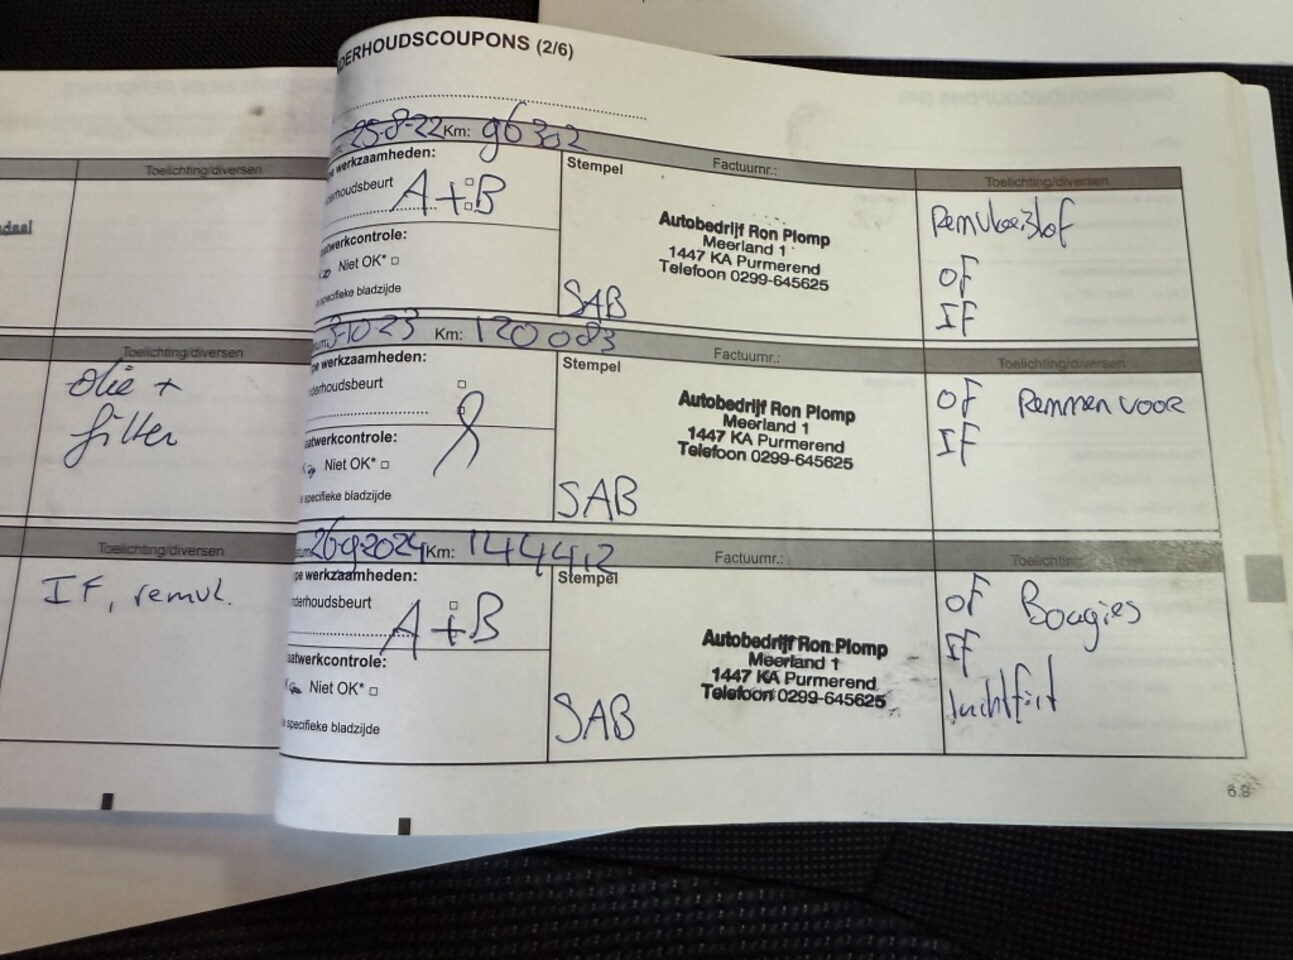 Toelichting/diversen
daal
Toelichting/diversen
olie +
filter
Toelichting/diversen
IF, remvl.
DERHOUDSCOUPONS (2/6)
25-8-22 Km: 96302
werkzaamheden:
Stempel
Factuurnr.:
Toelichting/diversen
derhoudsbeurt
A+B
aatwerkcontrole:
Niet OK*
specifieke bladzijde
SAB
Autobedrijf Ron Plomp
Meerland 1
1447 KA Purmerend
Telefoon 0299-645625
Remvloeistof
OF
IF
3-10-23 Km: 120 083
pe werkzaamheden:
Stempel
Factuurnr.:
Toelichting/diversen
nderhoudsbeurt
aatwerkcontrole:
Niet OK*
specifieke bladzijde
SAB
Autobedrijf Ron Plomp
Meerland 1
1447 KA Purmerend
Telefoon 0299-645625
OF Remmen voor
IF
26-9-2024 Km: 144412
pe werkzaamheden:
Stempel
Factuurnr.:
Toelichting
nderhoudsbeurt
A+B
aatwerkcontrole:
Niet OK*
specifieke bladzijde
SAB
Autobedrijf Ron Plomp
Meerland 1
1447 KA Purmerend
Telefoon 0299-645625
OF Bougies
IF
6.8